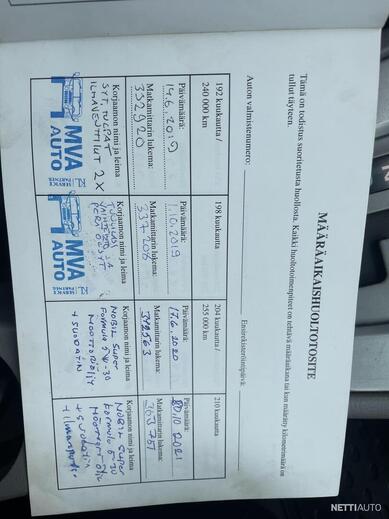 MÄÄRÄAIKAISHUOLTOTOSITE
Tämä on todistus suoritetusta huollosta. Kaikki huoltotoimenpiteet on tehtävä määräaikana tai kun määrätty kilometrimäärä on
tullut täyteen.
Auton valmistenumero:
Ensirekisteröintipäivä:
192 kuukautta /
240 000 km
Päivämäärä:
14.6.2019
Matkamittarin lukema:
332920
Korjaamon nimi ja leima
SYT.TULPAT
ILMAVENTTIILIT 2X
MVA
AUTO
SERVICE
PARTNER
198 kuukautta
Päivämäärä:
1.10.2019
Matkamittarin lukema:
Korjaamon nimi ja leima
PERÄ ÖLJYT
MVA
AUTO
SERVICE
PARTNER
204 kuukautta /
255 000 km
Päivämäärä:
17.6.2020
Matkamittarin lukema:
Korjaamon nimi ja leima
MOBIL SUPER
FORMULA 5W-30
MOOTTORIÖLJY
+ SUODATIN
210 kuukautta
Päivämäärä:
Matkamittarin lukema:
363 751
Korjaamon nimi ja leima
MOBIL SUPER
+ SUODATIN
NETTIAUTO